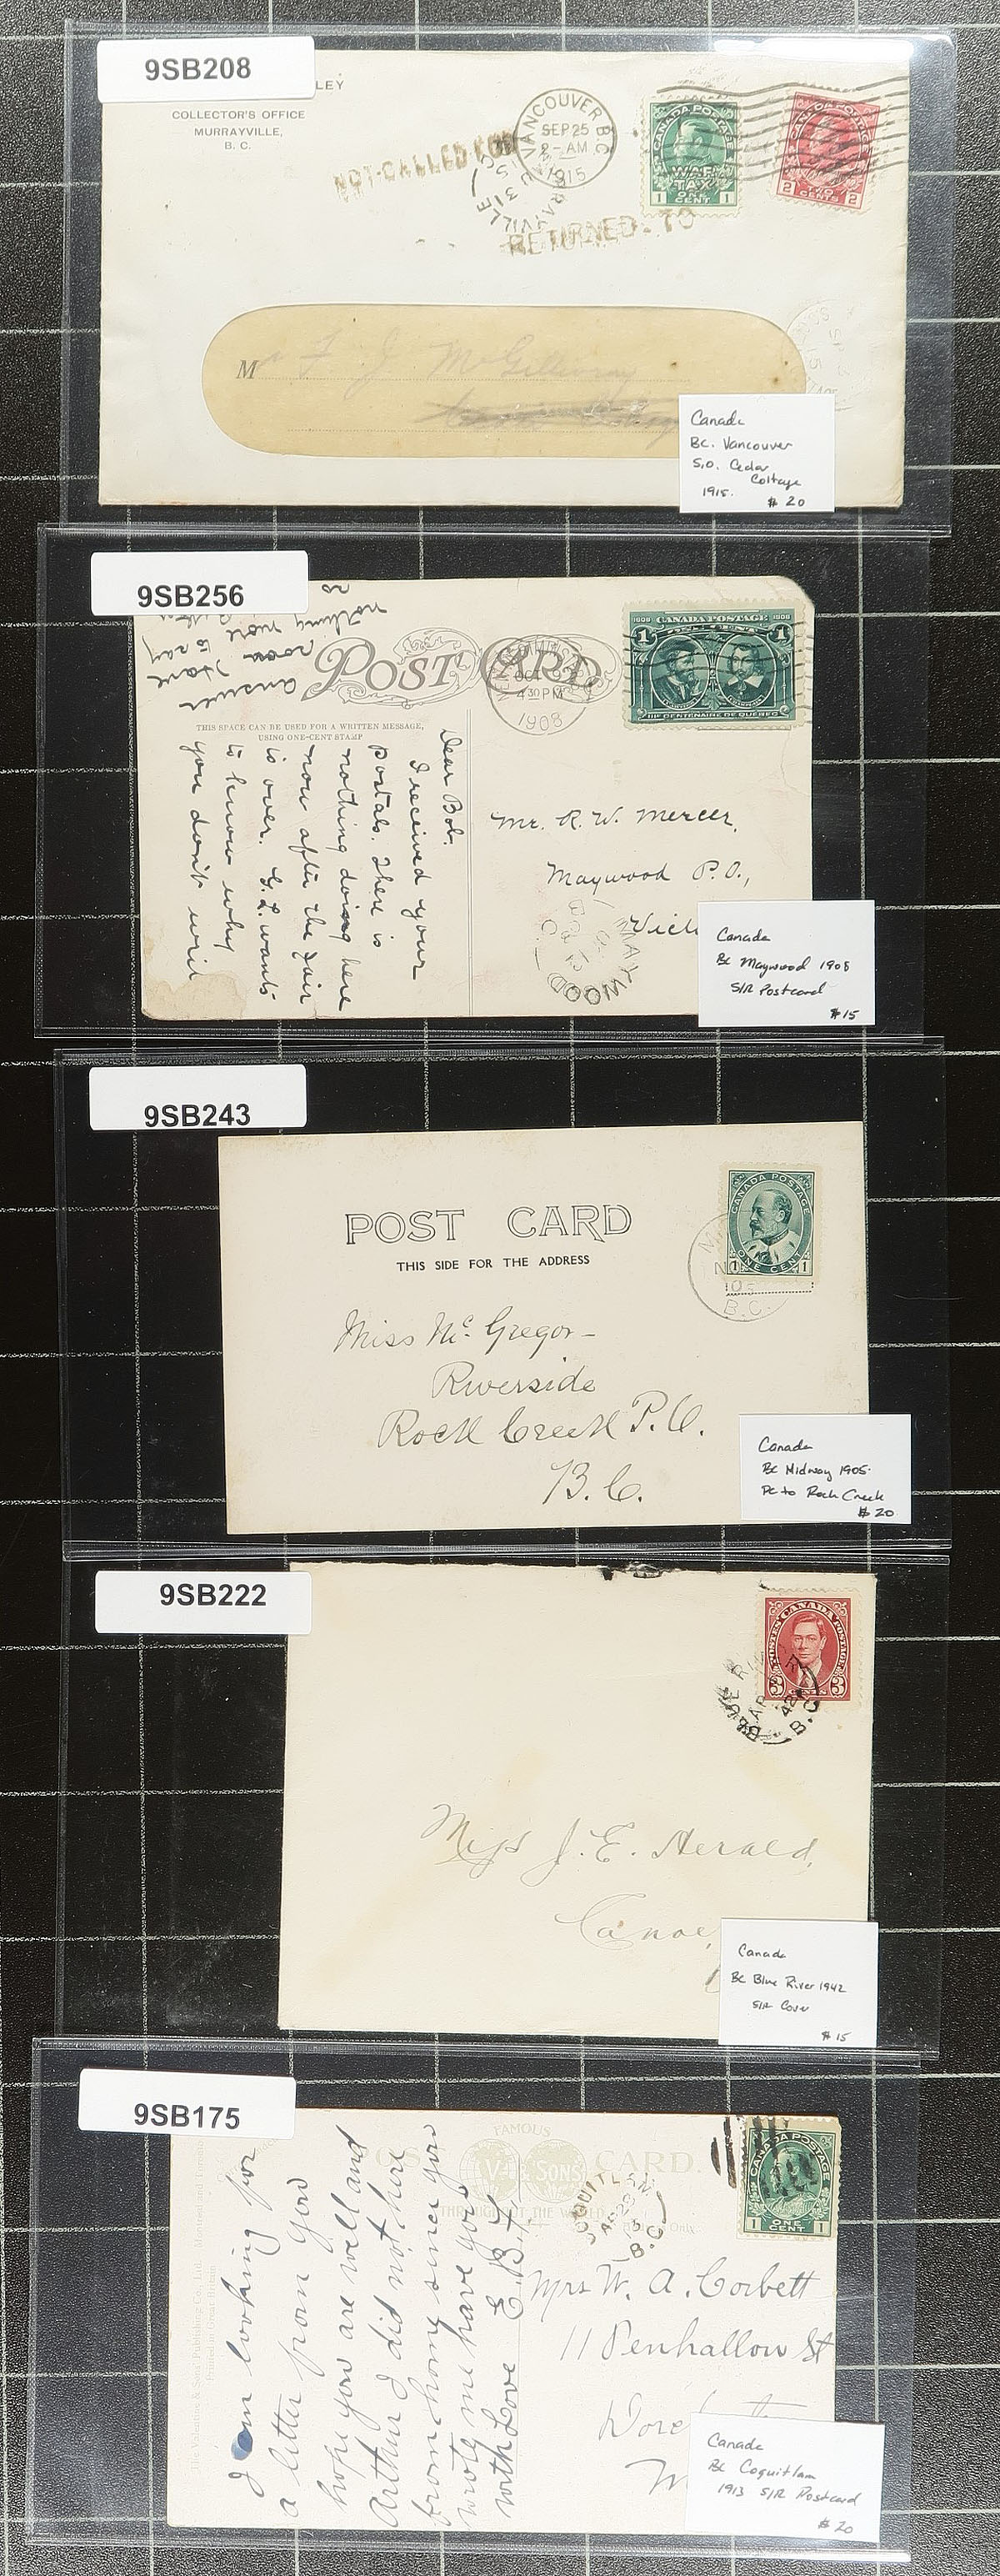 9SB208
LEY
COLLECTOR'S OFFICE
MURRAYVILLE,
B. C.
NOT CALLED FOR
VANCOUVER B.C.
SEP 25
1915
RETURNED TO
CANADA POSTAGE
WAR
TAX
ONE
CENT
1 1
2 CENTS 2
Mr F J McGillivray
Canada
BC. Vancouver
S.O. Cedar
Cottage
1915.
$20
9SB256
answer
Have
to say
nothing more
POST CARD.
THIS SPACE CAN BE USED FOR A WRITTEN MESSAGE,
USING ONE-CENT STAMP
OCT
4 30 PM
1908
1608 CANADA POSTAGE 1908
1 1
IIIe CENTENAIRE DE QUÉBEC
Dear Bob.
I received your
postals. There is
nothing doing here
now after the fair
is over. G.L. wants
to know why
you don't writ
Mr. R. W. Mercer,
Maywood P.O.,
Vict
MAYWOOD
B.C.
Canada
BC Maywood 1908
S/R Postcard
$15
9SB243
POST CARD
THIS SIDE FOR THE ADDRESS
CANADA POSTAGE
1 ONE CENT 1
B.C.
Miss McGregor-
Riverside
Rock Creek P.O.
B.C.
Canada
BC Midway 1905
PC to Rock Creek
$20
9SB222
POSTES CANADA POSTAGE
3 3
BLUE RIVER
AP
42
B.C.
Miss J. E. Herald,
Canoe,
Canada
BC Blue River 1942
S/R Cover
$15
9SB175
FAMOUS
V & SONS
THROUGHOUT THE WORLD
CARD.
Only.
COQUITLAM
B.C.
CANADA POSTAGE
1 ONE CENT 1
The Valentine & Sons' Publishing Co., Ltd., Montreal and Toronto
Printed in Great Britain
I am looking for
a letter from you
hope you are well and
Arthur I did not here
from home since you
wrote me have you
with Love E.B.H.
Mrs W. A. Corbett
11 Penhallow St
Dorc
M
Canada
BC Coquitlam
1913 S/R Postcard
$20